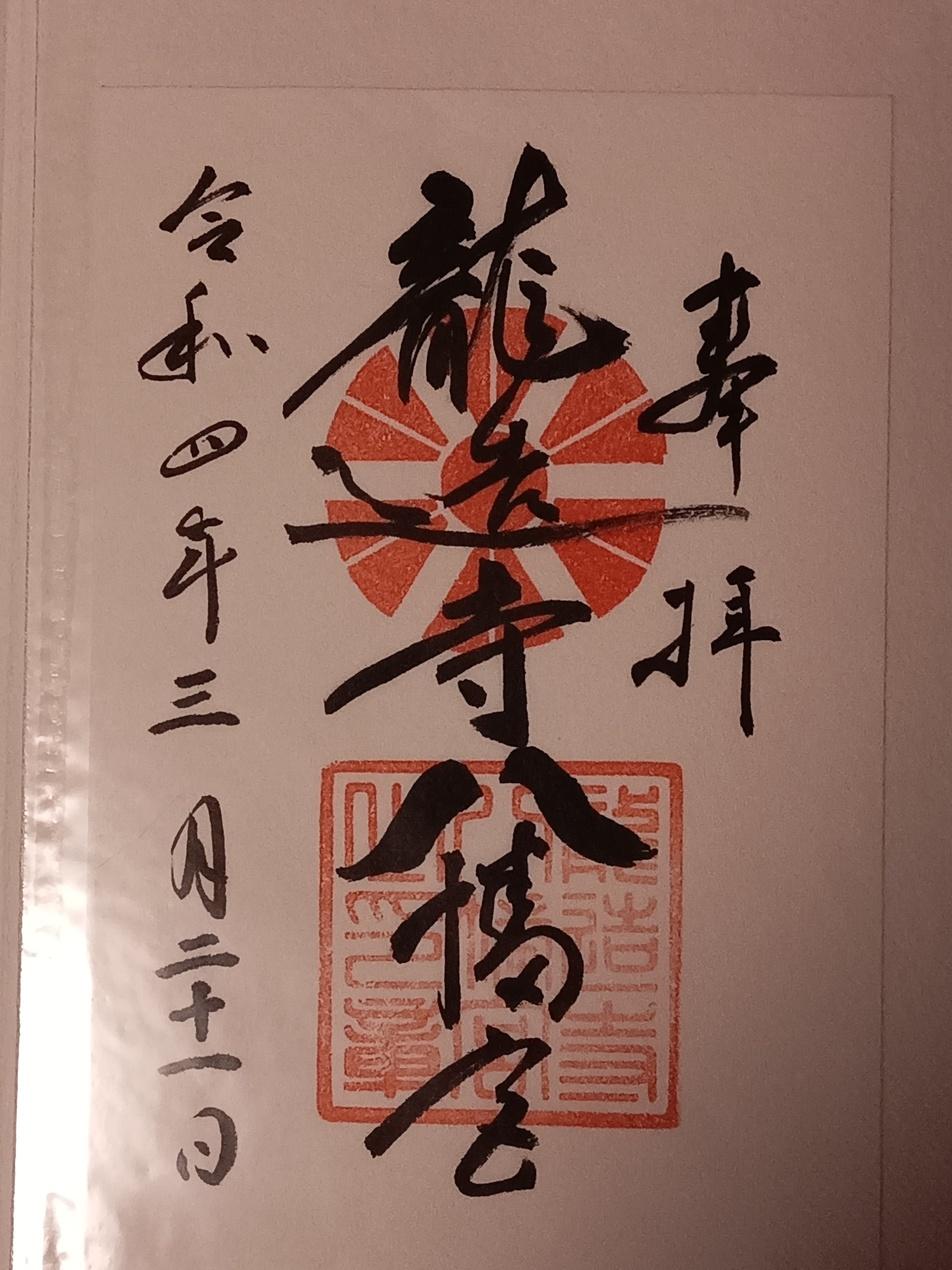 奉拝
龍造寺八幡宮
令和四年三月二十一日
龍造寺
八幡宮
之印章